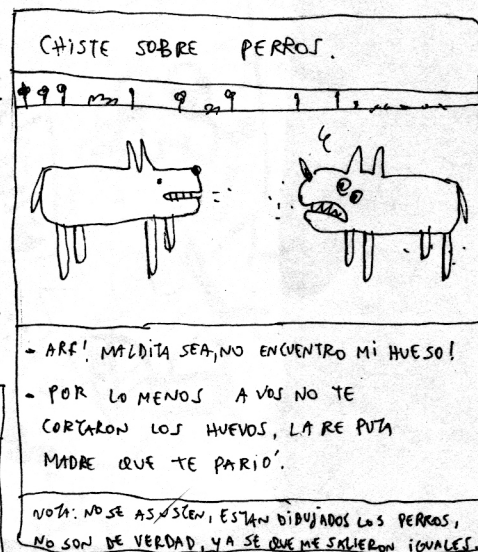 CHISTE SOBRE PERROS.
- ARF! MALDITA SEA, NO ENCUENTRO MI HUESO!
- POR LO MENOS A VOS NO TE
CORTARON LOS HUEVOS, LA RE PUTA
MADRE QUE TE PARIÓ.
NOTA: NO SE ASUSTEN, ESTAN DIBUJADOS LOS PERROS,
NO SON DE VERDAD, YA SE QUE ME SALIERON IGUALES.